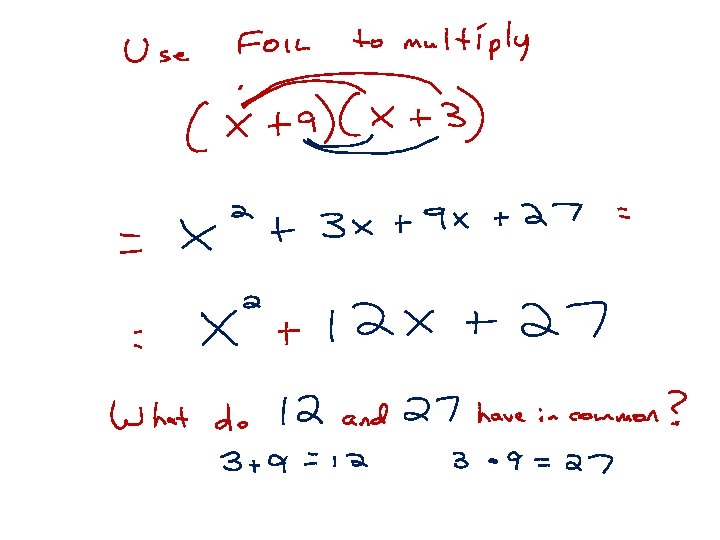 Use FOIL to multiply
(x+9)(x+3)
= x² + 3x + 9x + 27 =
= x² + 12x + 27
What do 12 and 27 have in common?
3+9=12 3•9=27